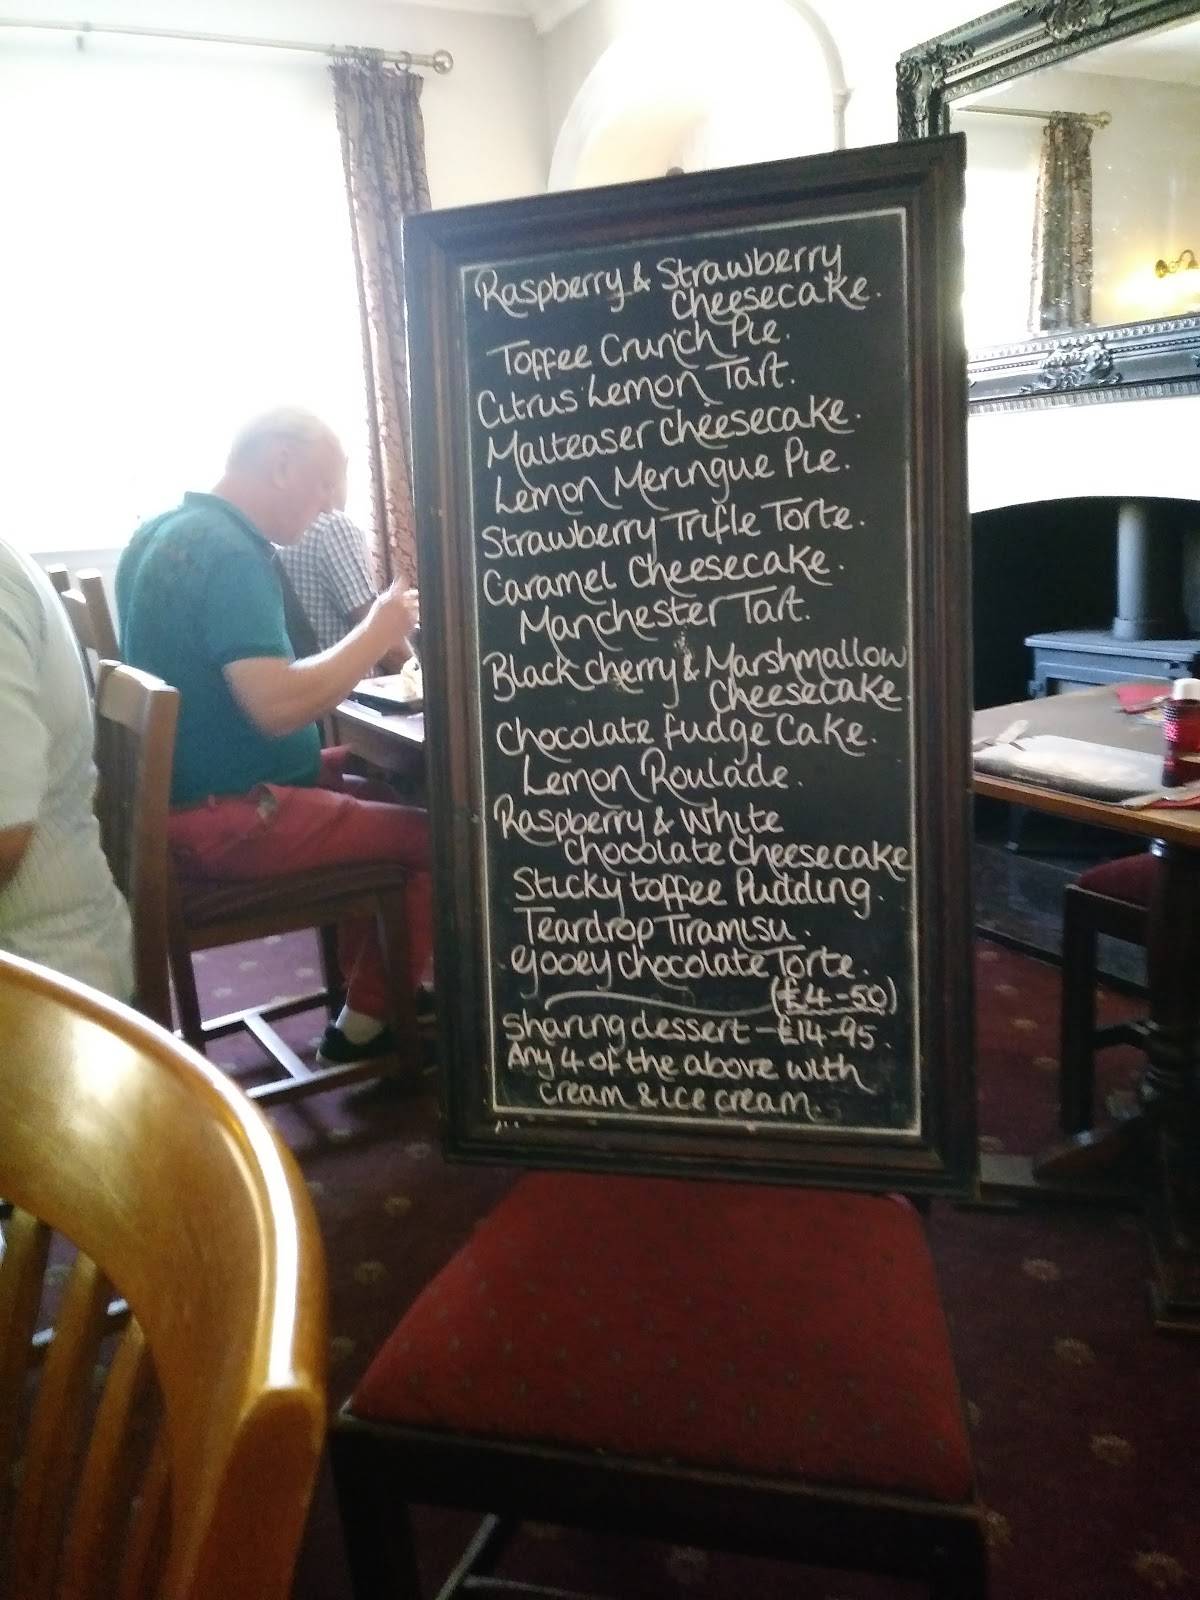 Raspberry & Strawberry
Cheesecake.
Toffee Crunch Pie.
Citrus Lemon Tart.
Malteaser Cheesecake.
Lemon Meringue Pie.
Strawberry Trifle Torte.
Caramel Cheesecake.
Manchester Tart.
Black cherry & Marshmallow
Cheesecake
Chocolate fudge Cake.
Lemon Roulade.
Raspberry & White
Chocolate Cheesecake
Sticky toffee Pudding.
Teardrop Tiramisu.
Gooey Chocolate Torte.
(£4-50)
Sharing dessert - £14-95.
Any 4 of the above with
cream & ice cream.